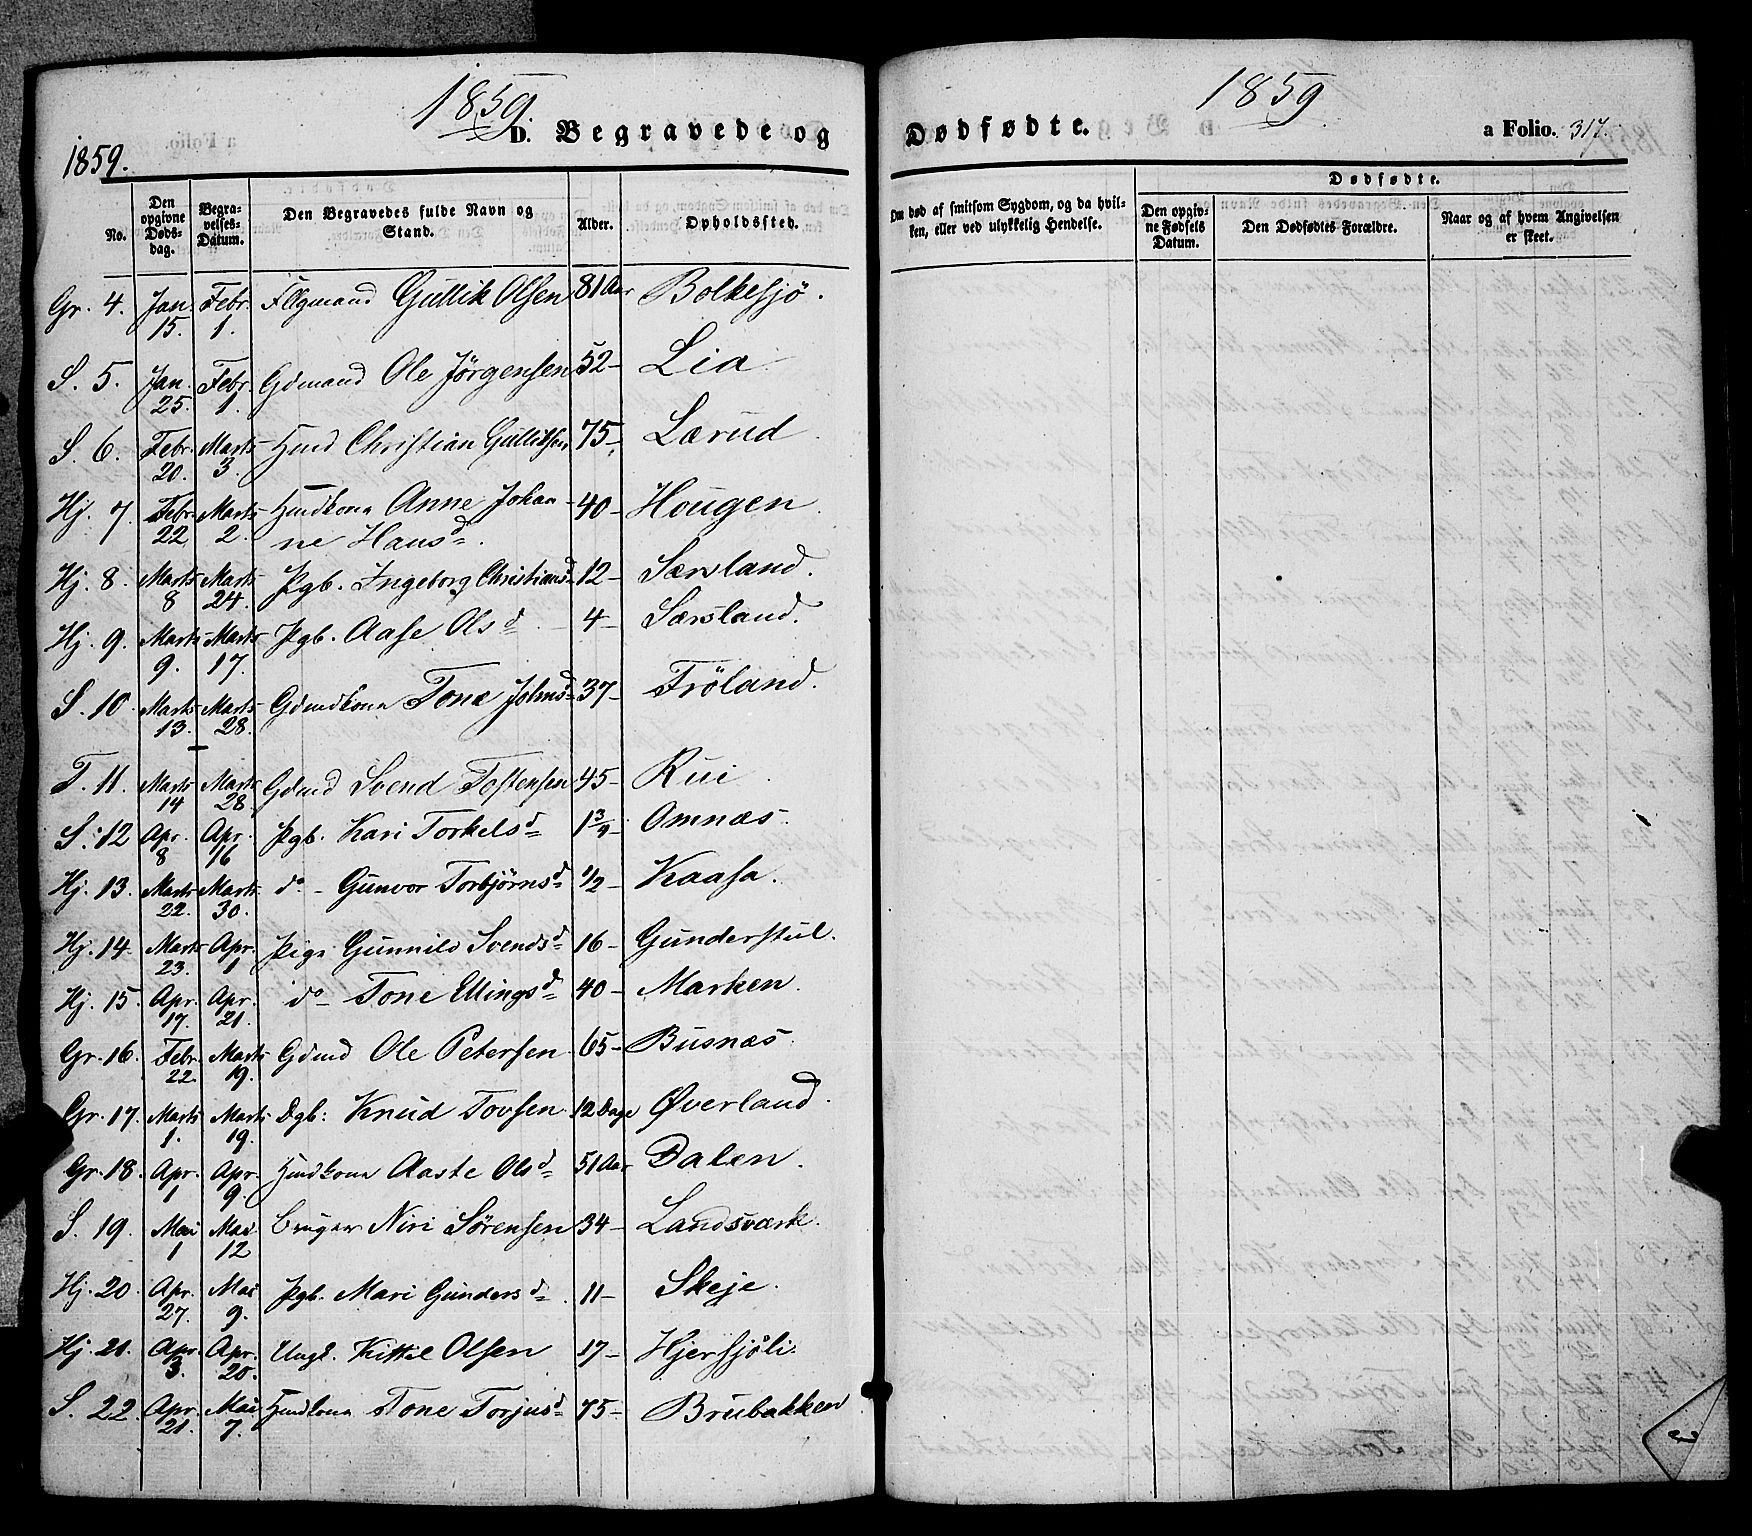 1859.
1859.
D. Begravede og
No.
Den opgivne Døds-dag.
Begra-velses-Datum.
Den Begravedes fulde Navn og Stand.
Alder.
Opholdssted.
Gr. 4. Jan. 15. Febr. 1. Gullik Olsen 81 Aar Bolkesjö.
S. 5. Jan. 25. Febr. 1. Gdmand Ole Jörgensen 52 - Lia.
S. 6. Febr. 20. Marts 3. Hmd Christian Gulliksen 75 - Lærud.
Hj. 7. Febr. 22. Marts 2. Hmdkona Anne Johan-
ne Hansd. 40 - Hougen.
Hj. 8. Marts 8 Marts 24. Pgb. Ingeborg Christiansd 12 - Særsland.
Hj. 9. Marts 9. Marts 17. Pgb. Aase Olsd 4 - Særsland.
S. 10. Marts 13. Marts 28. Gdmdkona Tone Johnsd 37 - Fröland.
T. 11. Marts 14 Marts 28. Gdmd Svend Tostensen 45 - Rui.
S. 12 Apr. 8 Apr. 16 Pgb. Kari Torkelsd 1 3/4 - Omnæs.
Hj. 13. Marts 22. Marts 30. do - Gunvor Torbjörnsd 1/2 - Kaasa.
Hj. 14. Marts 23. Apr. 1 Pige Gunnild Svendsd 16 - Gunderstul.
Hj. 15. Apr. 17. Apr. 21. do - Tone Ellingsd 40 - Marken.
Gr. 16. Febr. 22. Marts 19. Gdmd Ole Petersen 65 - Busnæs.
Gr. 17. Marts 1. Marts 19. Dgb: Knud Tovsen 12 Dage Øverland.
Gr. 18. Apr. 1 Apr. 9. Hmdkona Aaste Olsd 51 Aar Dalen.
S. 19. Mai 1 Mai 12 Bruger Niri Sörensen 34 - Landsværk.
Hj. 20. Apr. 27. Mai 9. Pgb. Mari Gundersd. 11 - Skeje.
Hj. 21. Apr. 3. Apr. 20. Ungk. Kittil Olsen 17 - Hjersjöli.
S. 22. Apr. 21. Mai 7. Hmdkona Tone Torjusd 75 - Brubakken
1859
Dødfødte.
a Folio. 317.
Om død af smitsom Sygdom, og da hvil-
ken, eller ved ulykkelig Hendelse.
Dødfødte.
Den opgiv-ne Fødsels Datum.
Den Dødfødtes Forældre.
Naar og af hvem Angivelsen er skeet.